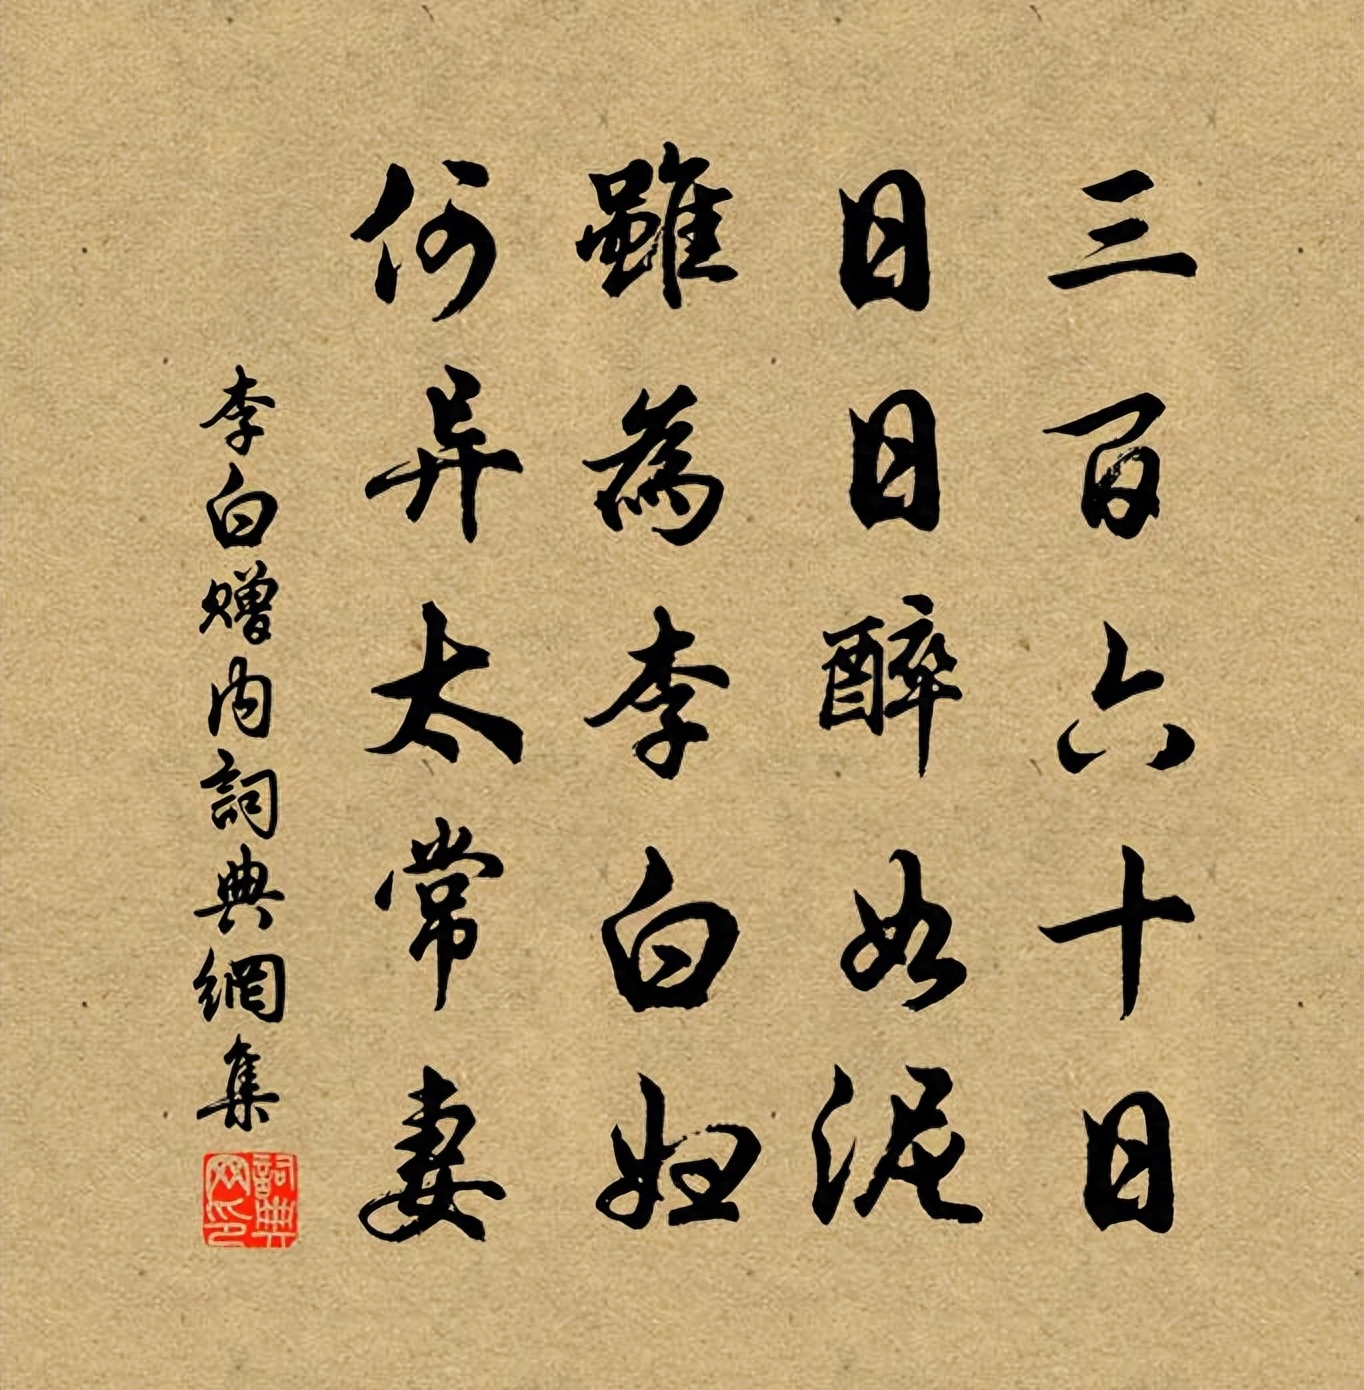 三百六十日
日日醉如泥
雖為李白妇
何异太常妻
李白赠内詞典網集
詞典网印